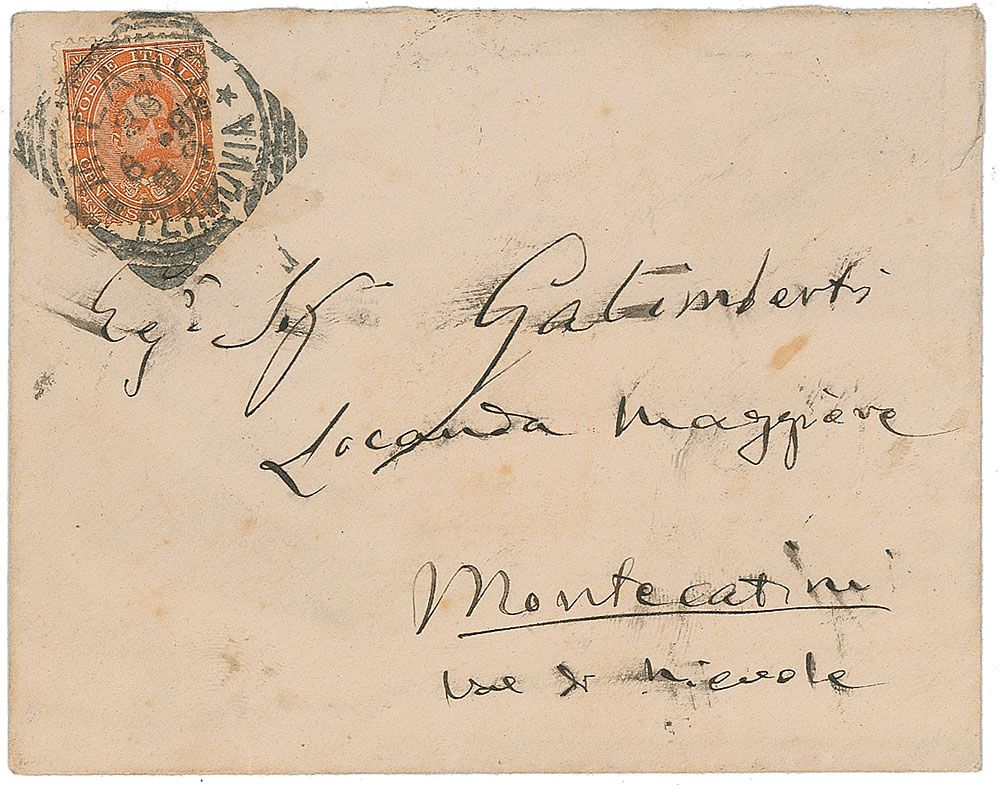 POSTE ITALIANE
MILANO
FERROVIA *
Egº Sig Galimberti
Locanda Maggiore
Montecatini
Val di Nievole